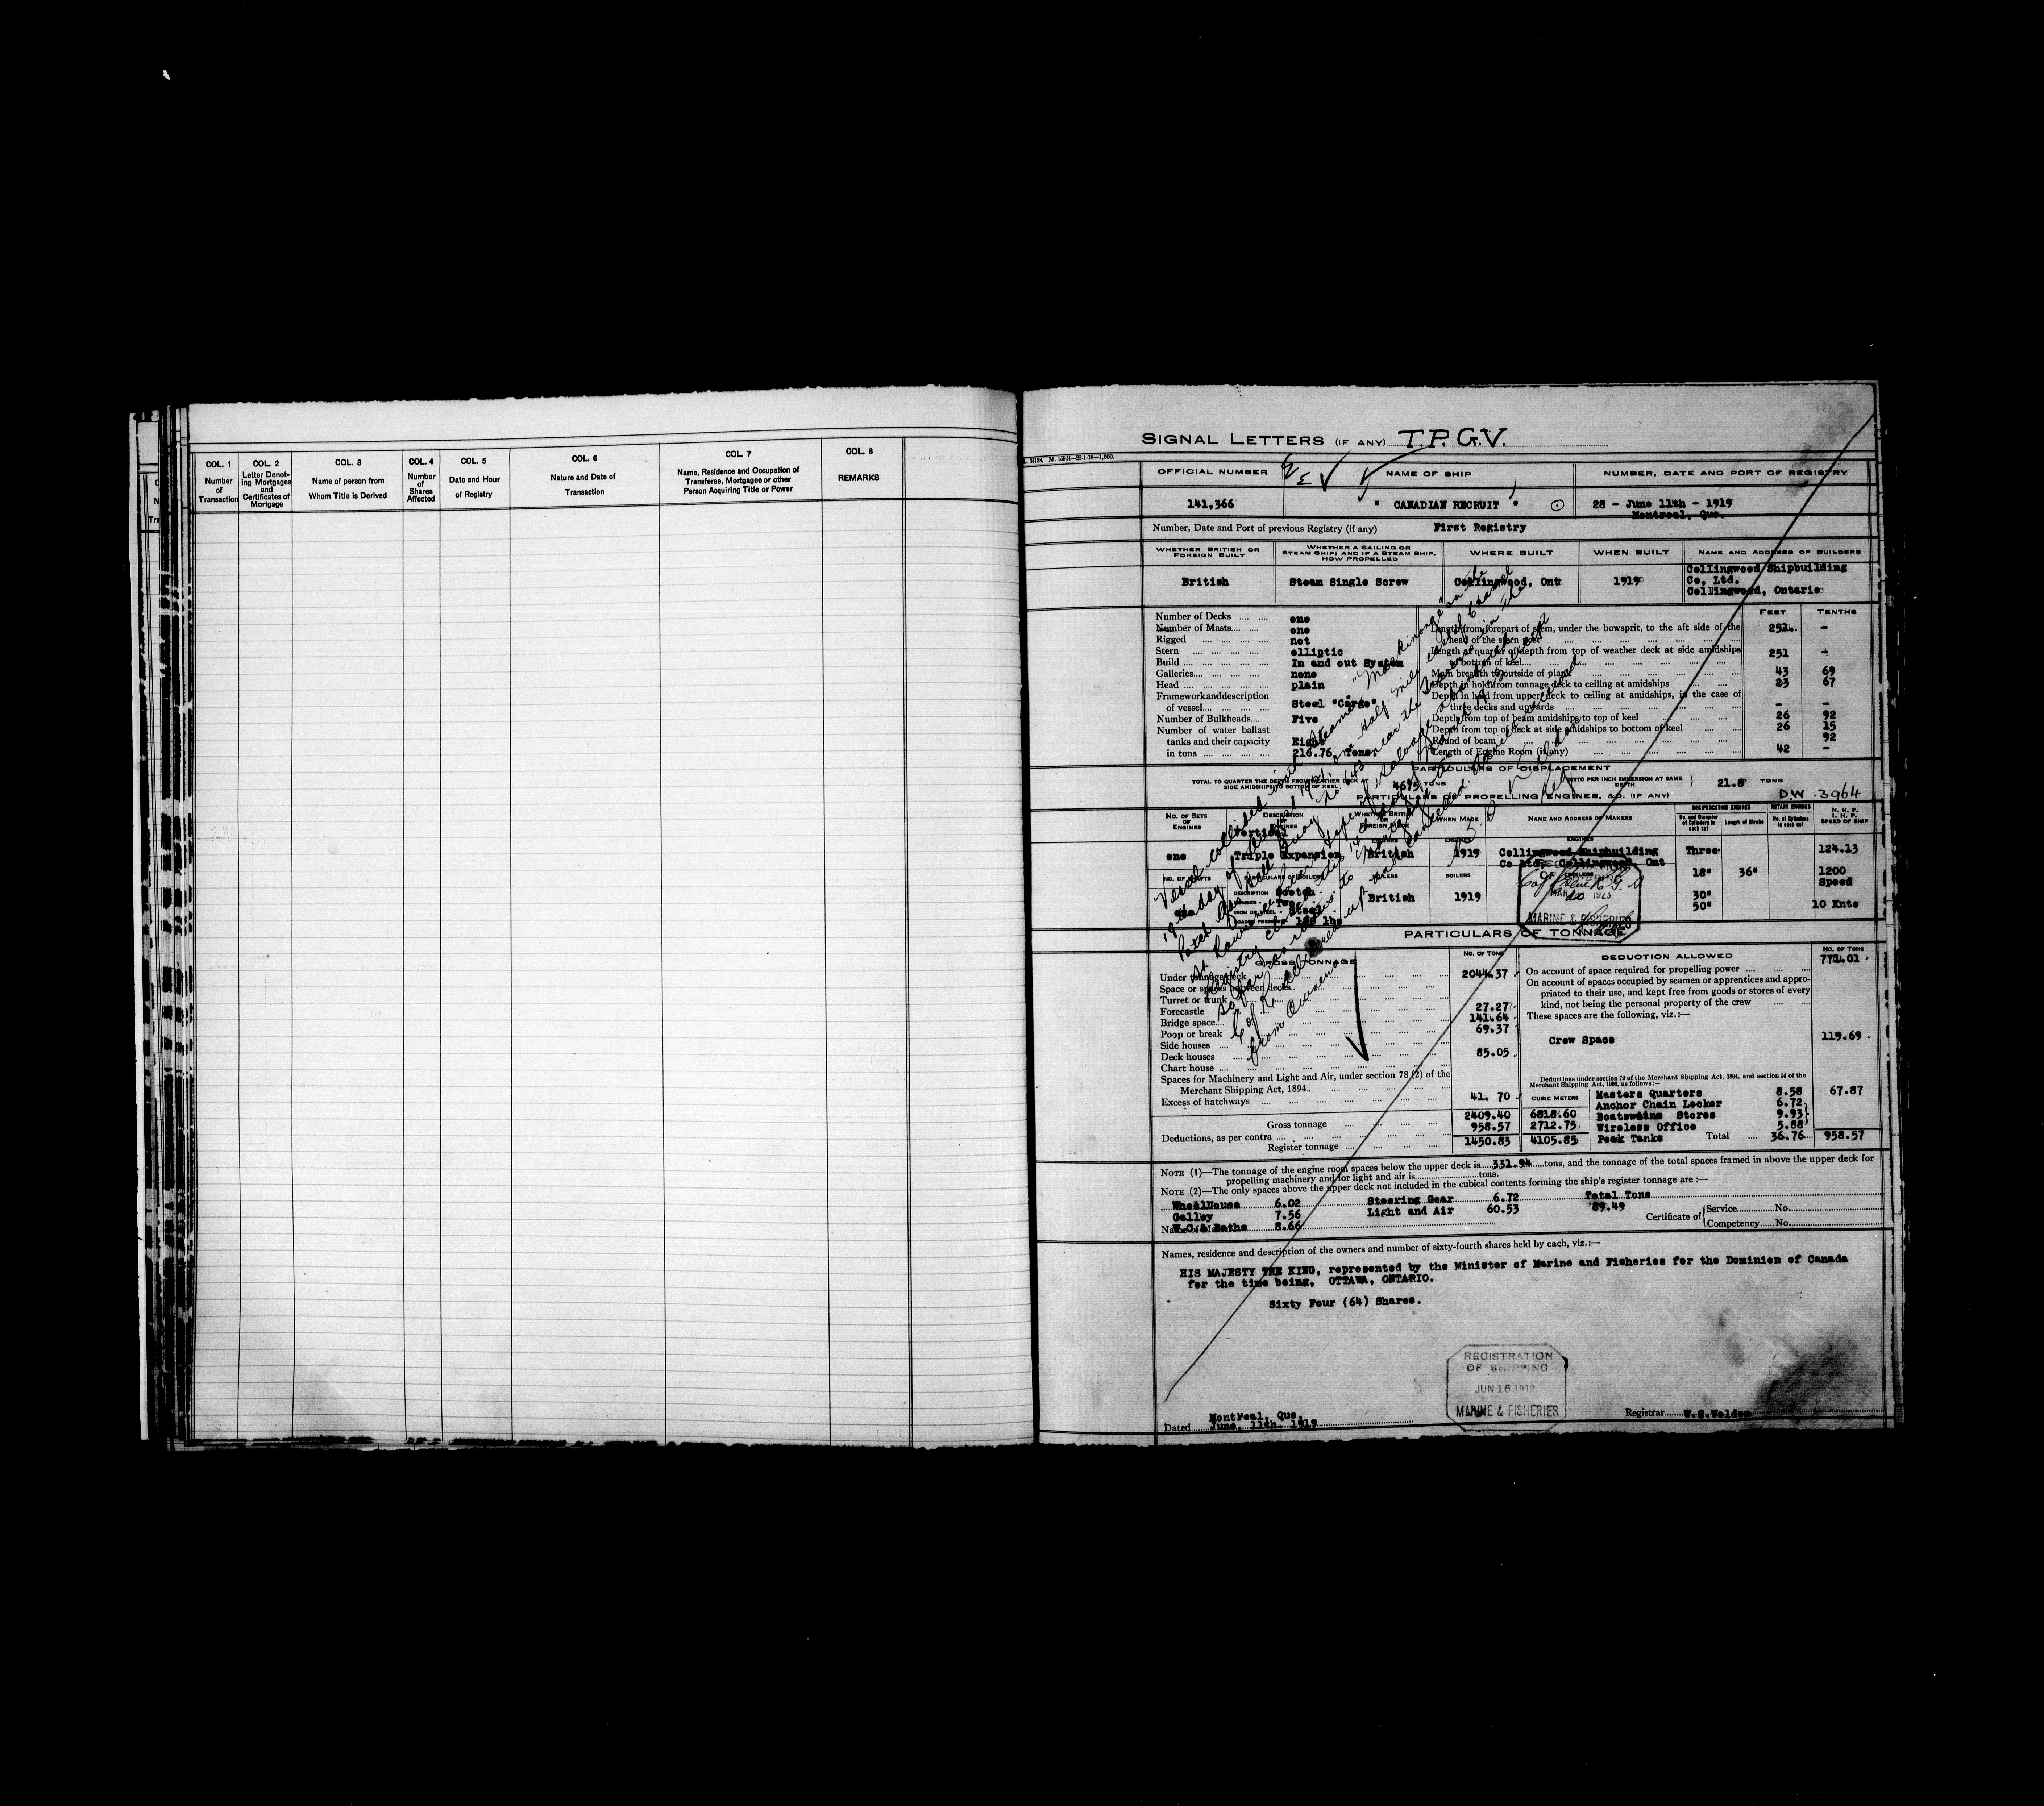 COL. 1
Number
of
Transaction
COL. 2
Letter Denot-
ing Mortgages
and
Certificates of
Mortgage
COL. 3
Name of person from
Whom Title is Derived
COL. 4
Number
of
Shares
Affected
COL. 5
Date and Hour
of Registry
COL. 6
Nature and Date of
Transaction
COL. 7
Name, Residence and Occupation of
Transferee, Mortgagee or other
Person Acquiring Title or Power
COL. 8
REMARKS
SIGNAL LETTERS (IF ANY) T.P.G.V.
OFFICIAL NUMBER NAME OF SHIP NUMBER, DATE AND PORT OF REGISTRY
141,366 " CANADIAN RECRUIT " 28 - June 11th - 1919
Montreal, Que.
Number, Date and Port of previous Registry (if any) First Registry
WHETHER BRITISH OR
FOREIGN BUILT
WHETHER A SAILING OR
STEAM SHIP; AND IF A STEAM SHIP,
HOW PROPELLED
WHERE BUILT
WHEN BUILT
NAME AND ADDRESS OF BUILDERS
British Steam Single Screw Collingwood, Ont 1919
Collingwood Shipbuilding
Co, Ltd.
Collingwood, Ontario
Number of Decks one
Number of Masts one
Rigged not
Stern elliptic
Build In and out System
Galleries none
Head plain
Framework and description
of vessel Steel "Cargo"
Number of Bulkheads Five
Number of water ballast
tanks and their capacity Eight
in tons 216.76 Tons
FEET TENTHS
Length from forepart of stem, under the bowsprit, to the aft side of the
head of the stern post 251 -
Length at quarter of depth from top of weather deck at side amidships
to bottom of keel 251 -
Main breadth to outside of plank 43 69
Depth in hold from tonnage deck to ceiling at amidships 23 67
Depth in hold from upper deck to ceiling at amidships, in the case of
three decks and upwards - -
Depth from top of beam amidships to top of keel 26 92
Depth from top of deck at side amidships to bottom of keel 26 15
Round of beam 92
Length of Engine Room (if any) 42 -
PARTICULARS OF DISPLACEMENT
TOTAL TO QUARTER THE DEPTH FROM WEATHER DECK AT
SIDE AMIDSHIPS TO BOTTOM OF KEEL 4675 TONS
DITTO PER INCH IMMERSION AT SAME
DEPTH 21.8 TONS
DW 3964
PARTICULARS OF PROPELLING ENGINES, &C. (IF ANY)
No. of Sets
of
Engines
DESCRIPTION
OF
ENGINES
WHETHER BRITISH
OR
FOREIGN MADE
WHEN MADE
NAME AND ADDRESS OF MAKERS
RECIPROCATING ENGINES
No. and Diameter
of Cylinders in
each set
Length of Stroke
ROTARY ENGINES
No. of Cylinders
in each set
N. H. P.
I. H. P.
SPEED OF SHIP
one
Vertical
Triple Expansion British 1919
Collingwood Shipbuilding
Co Ltd. Collingwood, Ont
Three 124.13
18" 36" 1200
Speed
30"
50" 10 Knts
NO. OF SHAFTS PARTICULARS OF BOILERS BOILERS BOILERS
DESCRIPTION Scotch
NUMBER - Two
IRON OR STEEL - Steel
LOADED PRESSURE - 180 lbs
British 1919
MARINE & FISHERIES
Vessel collided with Steamer "Maskinonge" on the
18th day of
St Lawrence
PARTICULARS OF TONNAGE
GROSS TONNAGE NO. OF TONS
Under tonnage deck 2044.37
Space or spaces between decks
Turret or trunk
Forecastle 27.27
Bridge space 141.64
Poop or break 69.37
Side houses
Deck houses 85.05
Chart house
Spaces for Machinery and Light and Air, under section 78 (2) of the
Merchant Shipping Act, 1894
Excess of hatchways 41. 70
CUBIC METERS
Gross tonnage 2409.40 6818.60
Deductions, as per contra 958.57 2712.75
Register tonnage 1450.83 4105.85
DEDUCTION ALLOWED NO. OF TONS
On account of space required for propelling power 771.01
On account of spaces occupied by seamen or apprentices and appro-
priated to their use, and kept free from goods or stores of every
kind, not being the personal property of the crew
These spaces are the following, viz.:—
Crew Space 119.69
Deductions under section 79 of the Merchant Shipping Act, 1894, and section 54 of the
Merchant Shipping Act, 1906, as follows:—
Masters Quarters 8.58 67.87
Anchor Chain Locker 6.72
Boatswains Stores 9.93
Wireless Office 5.88
Peak Tanks Total 36.76 958.57
NOTE (1)—The tonnage of the engine room spaces below the upper deck is 331.94 tons, and the tonnage of the total spaces framed in above the upper deck for
propelling machinery and for light and air is tons.
NOTE (2)—The only spaces above the upper deck not included in the cubical contents forming the ship's register tonnage are :—
WheelHouse 6.02 Steering Gear 6.72 Total Tons
Galley 7.56 Light and Air 60.53 89.49
W.C.& Baths 8.66
Certificate of Service No.
Competency No.
Names, residence and description of the owners and number of sixty-fourth shares held by each, viz.:—
HIS MAJESTY THE KING, represented by the Minister of Marine and Fisheries for the Dominion of Canada
for the time being, OTTAWA, ONTARIO.
Sixty Four (64) Shares.
REGISTRATION
OF SHIPPING
JUN 16 1919
MARINE & FISHERIES
Dated Montreal, Que.
June, 11th. 1919
Registrar W.S.Weldon